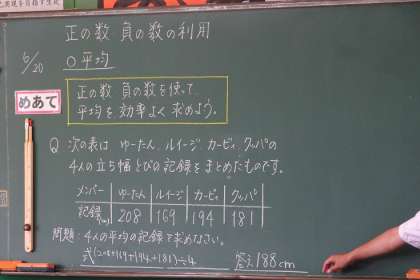 正の数 負の数の利用
6/20
○平均
めあて
正の数 負の数を使って、
平均を効率よく求めよう。
Q 次の表は ゆーたん、ルイージ、カービィ、クッパの
4人の立ち幅とびの記録をまとめたものです。
メンバー ゆーたん ルイージ カービィ クッパ
記録(cm) 208 169 194 181
問題:4人の平均の記録を求めなさい。
式(208+169+194+181)÷4
答え 188cm